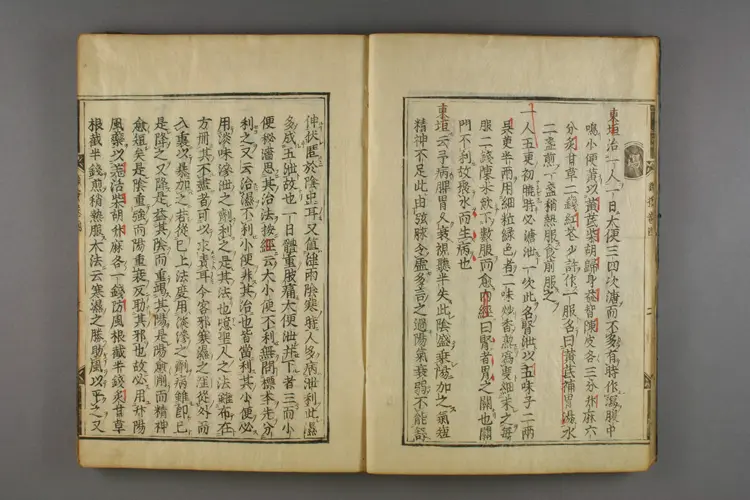 東垣治一人一日大便三四次溏而不多有時作瀉腹中
鳴小便黃以黃芪柴胡歸身益智陳皮各三分升麻六
分炙甘草二錢紅花少許作一服名曰黃芪補胃湯水
二盞煎一盞稍熱服食前服之
一人五更初曉時必溏泄一次此名腎泄以五味子二兩
吳茱半兩用細粒綠色者一味炒香熟爲度細末之每
服二錢陳米飲下數服而愈內經曰腎者胃之關也關
門不利故聚水而生病也
東垣云予病脾胃久衰視聽半失此陰盛乘陽加之氣短
精神不足此由弦脉令虛多言之過陽氣衰弱不能舒
伸伏匿於陰中耳又值淫雨陰寒時人多病泄利此濕
多成五泄故也一日體重肢痛大便泄并下者三而小
便秘濇思其治法按經云大小便不利無問標本先分
利之又云治濕不利小便非其治也皆當利其小便必
用淡味滲泄之劑利之是其法也噫聖人之法雖布在
方冊其不盡者可以求責耳今客邪寒濕之淫從外而
入裏以暴加之若從已上法度用淡滲之劑病雖即已
是降之又降是益其陰而重竭其陽是陽愈削而精神
愈短矣是陰重強而陽重衰反助其邪也故必用升陽
風藥以羌活獨活柴胡升麻各一錢防風根截半錢炙甘草
根截半錢煎稍熱服大法云寒濕之勝助風以平之又